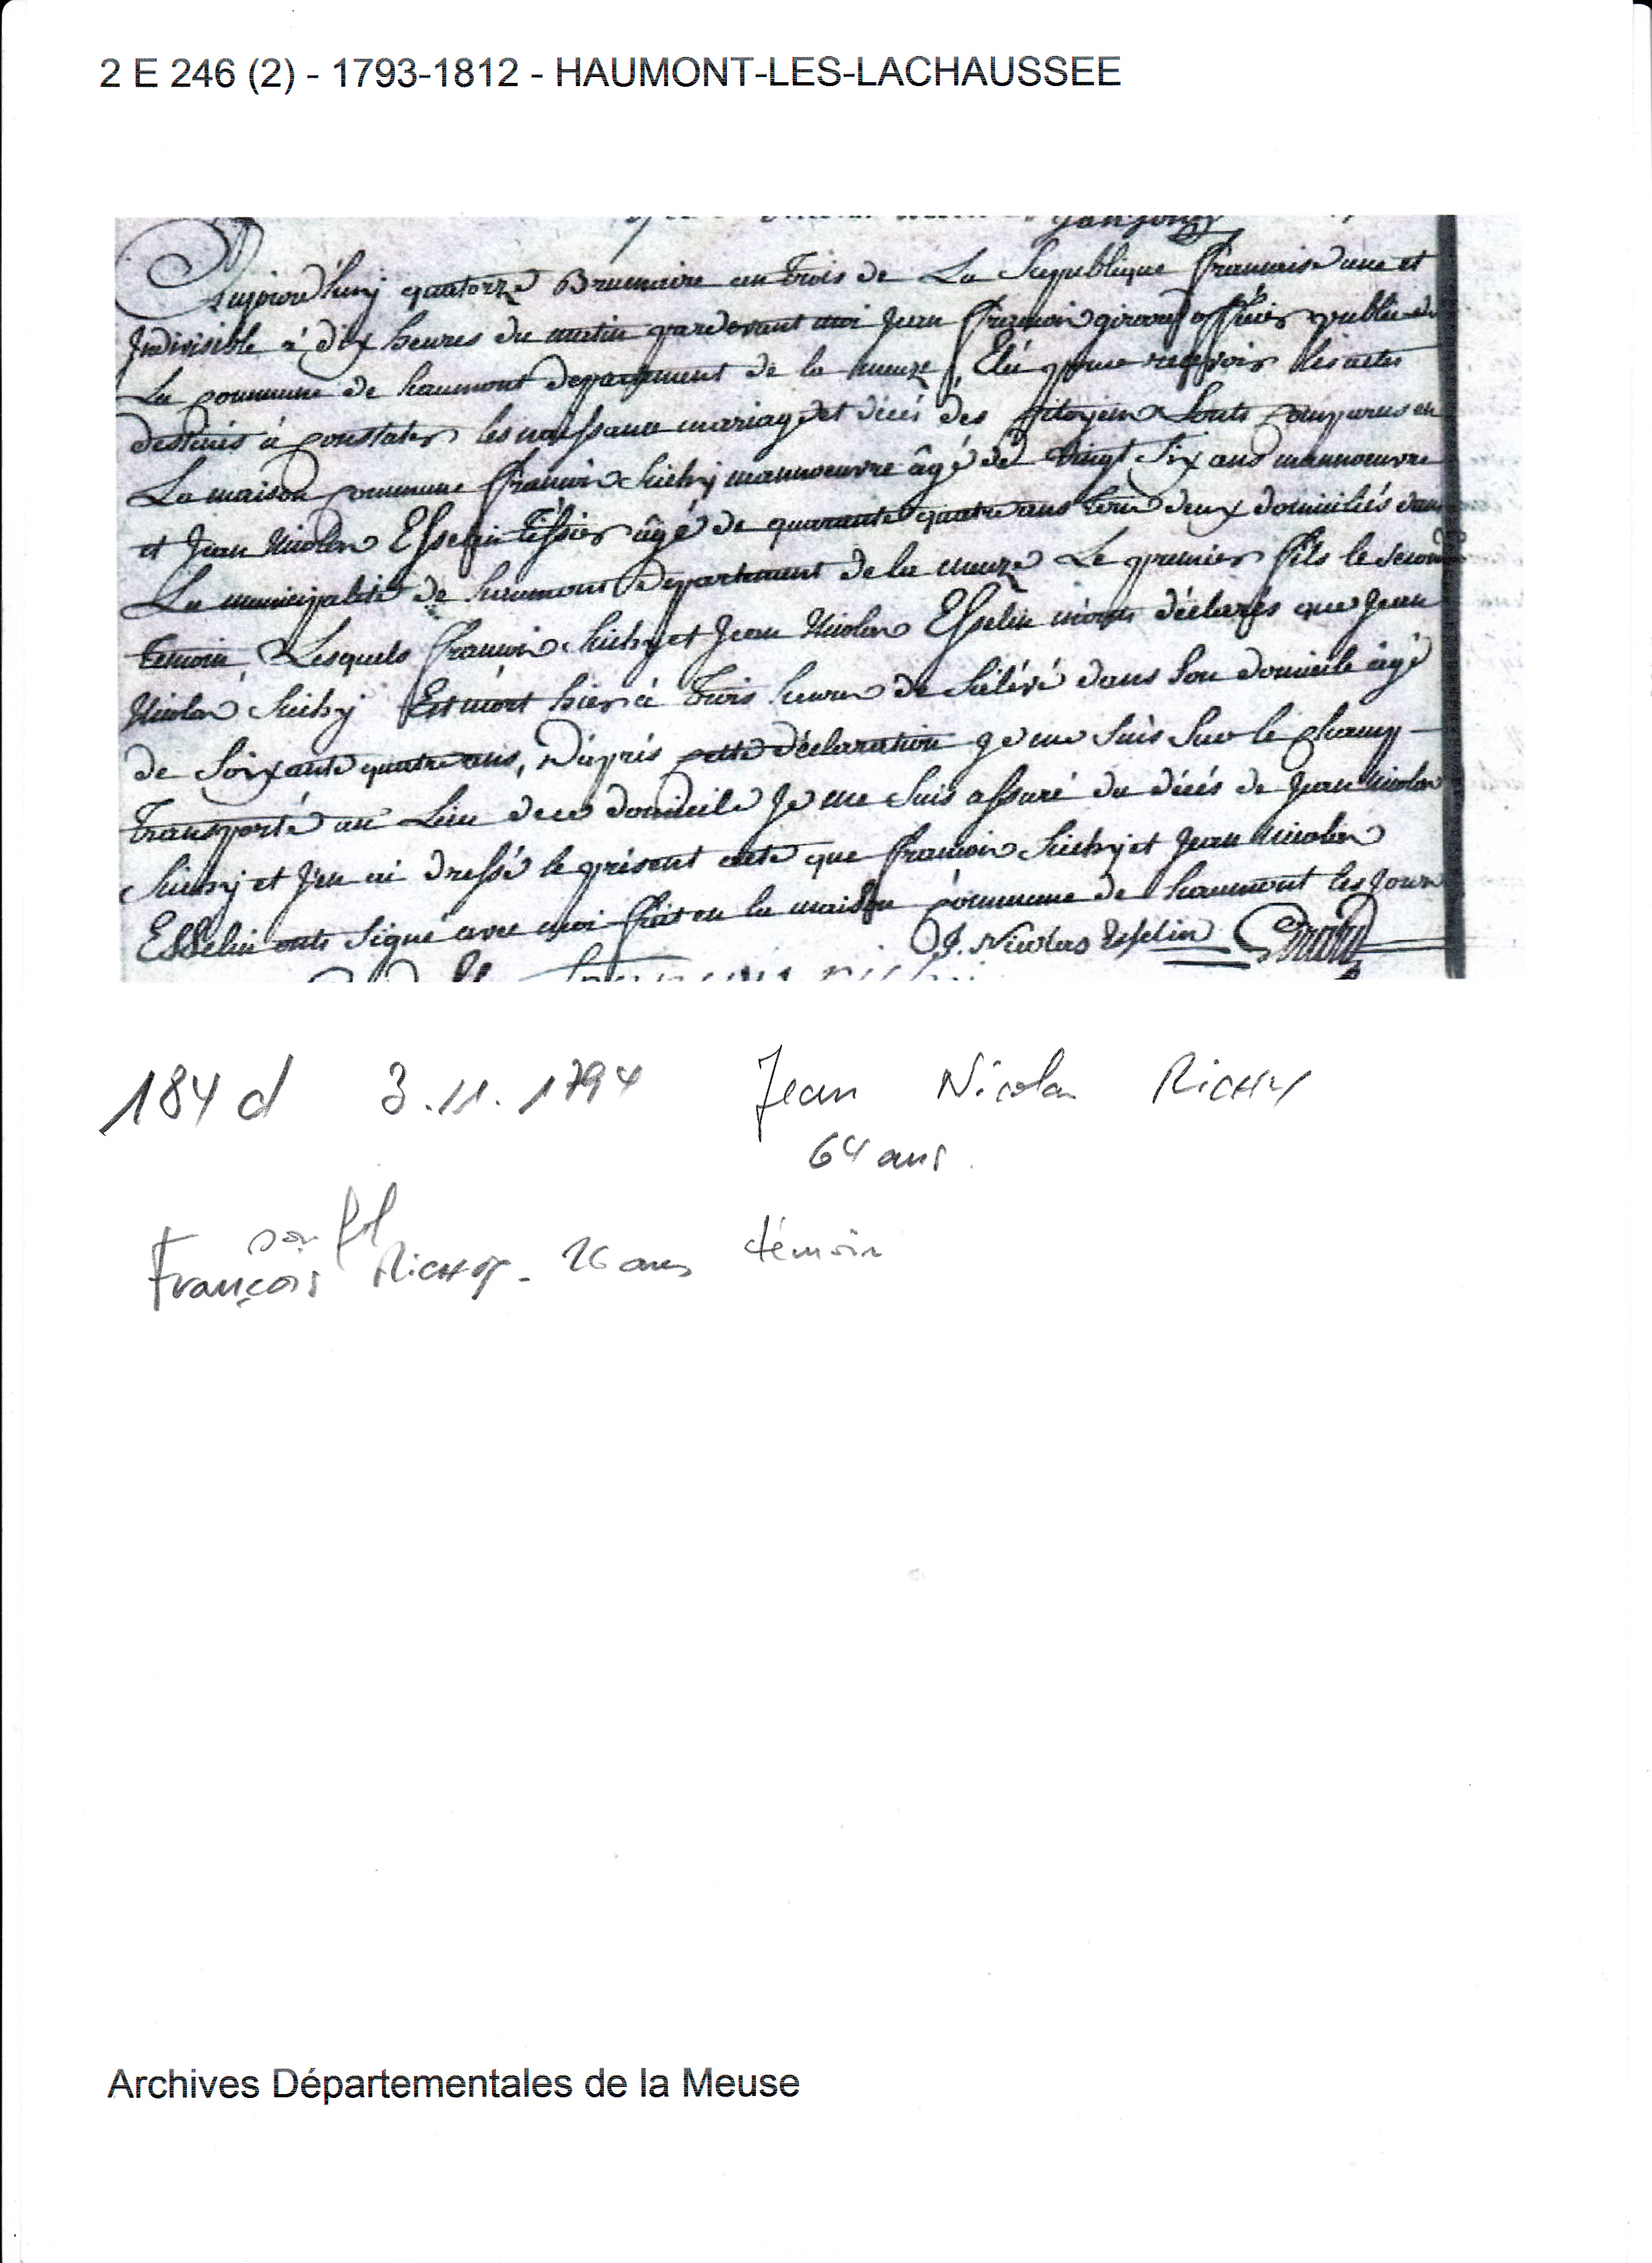 2 E 246 (2) - 1793-1812 - HAUMONT-LES-LACHAUSSEE
Aujourd'huy quatorze Brumaire an trois de La Republique francaise une et
Jndivisible à dix heures du matin pardevant moi Jean francoi girard officier public de
La commune de haumont departement de la meuze Élu pour recevoir les actes
destinés à constater les naissance mariage et décés des citoyens sonts comparus en
La maison commune francoi Richy manoeuvre âgé de vingt six ans manoeuvre
et Jean Nicolas Esselin tissier âgé de quarante quatre ans tous deux domiciliés dans
La municipalité de haumont departement de la meuze Le premier fils le second
temoin Lesquels francoi Richy et Jean Nicolas Esselin m'ont déclarés que Jean
Nicolas Richy Est mort hier à trois heures de Rélévé dans son domicile âgé
de soixante quatre ans, D'après cette déclaration je me suis sur le champ
transporté au Lieu de ce domicile Je me suis assuré du décés de Jean Nicolas
Richy et J'en ai dressé le présent acte que francoi Richy et Jean Nicolas
Esselin onts signé avec moi fait en la maison commune de haumont les Jour
J. Nicolas Esselin Girard
184 d 3.11.1794 Jean Nicolas RICHY
64 ans.
son fils
François RICHY - 26 ans témoin
Archives Départementales de la Meuse